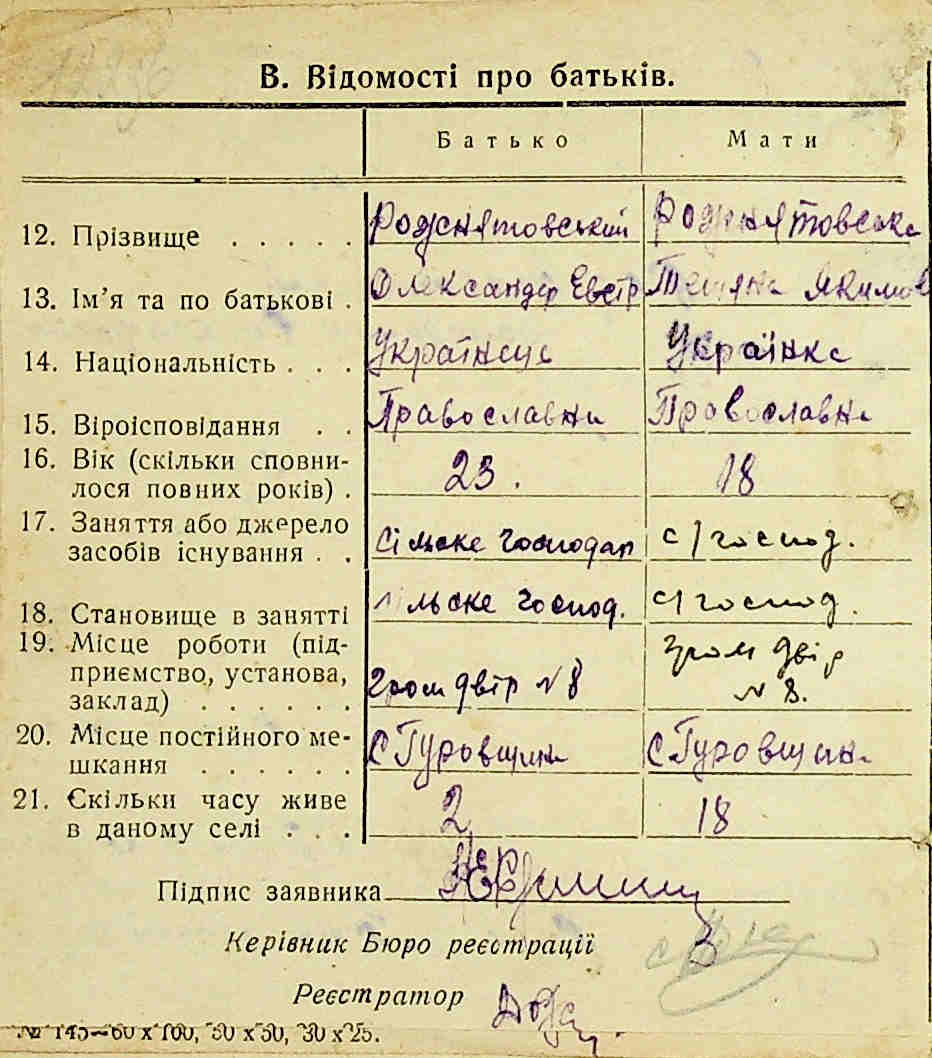 В. Відомості про батьків.
Батько Мати
12. Прізвище . . . . . Рожнятовський Рожнятовська
13. Ім’я та по батькові . Олександер Евстр Тетяна Якимов
14. Національність . . . Українець Українка
15. Віроісповідання . . Православни Православни
16. Вік (скільки сповни-
лося повних років) . 23. 18
17. Заняття або джерело
засобів існування . . Сільске господар с/господ.
18. Становище в занятті сільске господ. с/господ.
19. Місце роботи (під-
приємство, установа,
заклад) . . . . . . Гром двір №8 Гром двір
№ 8.
20. Місце постійного ме-
шкання . . . . . . С Гуровщина С Гуровщина
21. Скільки часу живе
в даному селі . . . 2 18
Підпис заявника
Керівник Бюро реєстрації
Реєстратор
№ 145—60 х 100, 30 х 50, 30 х 25.